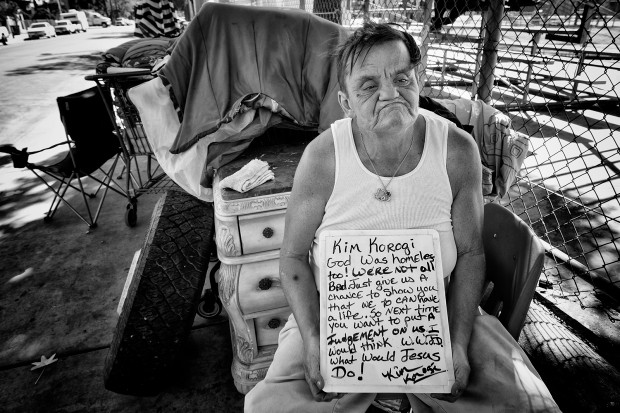 Kim Korogi
God was homeless
too! We're not all
Bad. Just give us a
chance to show you
that we to can have
a life.. So next time
you want to put A
Judgement on us I
would think W.W.J.D
what would Jesus
Do!
Kim
Korogi